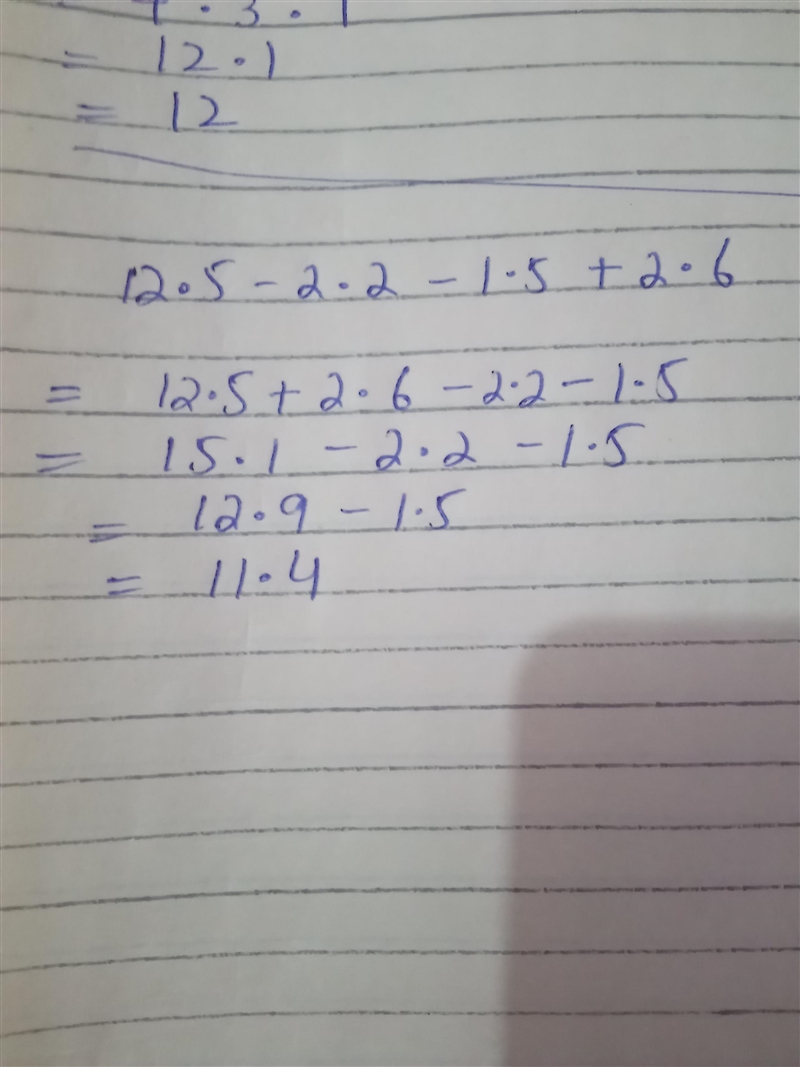 · 3 · 1
= 12 · 1
= 12
12·5 - 2·2 - 1·5 + 2·6
= 12·5 + 2·6 - 2·2 - 1·5
= 15·1 - 2·2 - 1·5
= 12·9 - 1·5
= 11·4